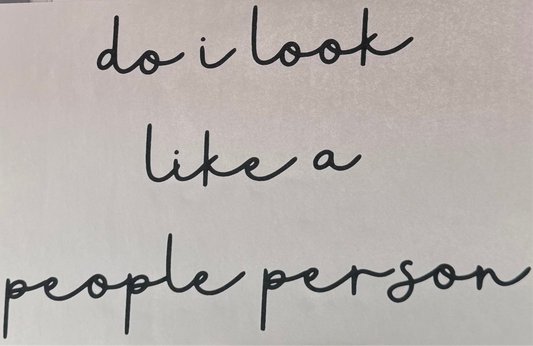 do i look
like a
people person